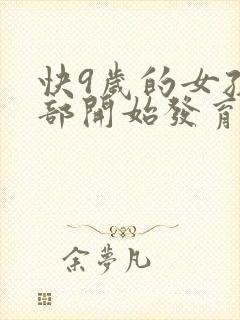 快9歲的女孩
部開始發育
余夢凡